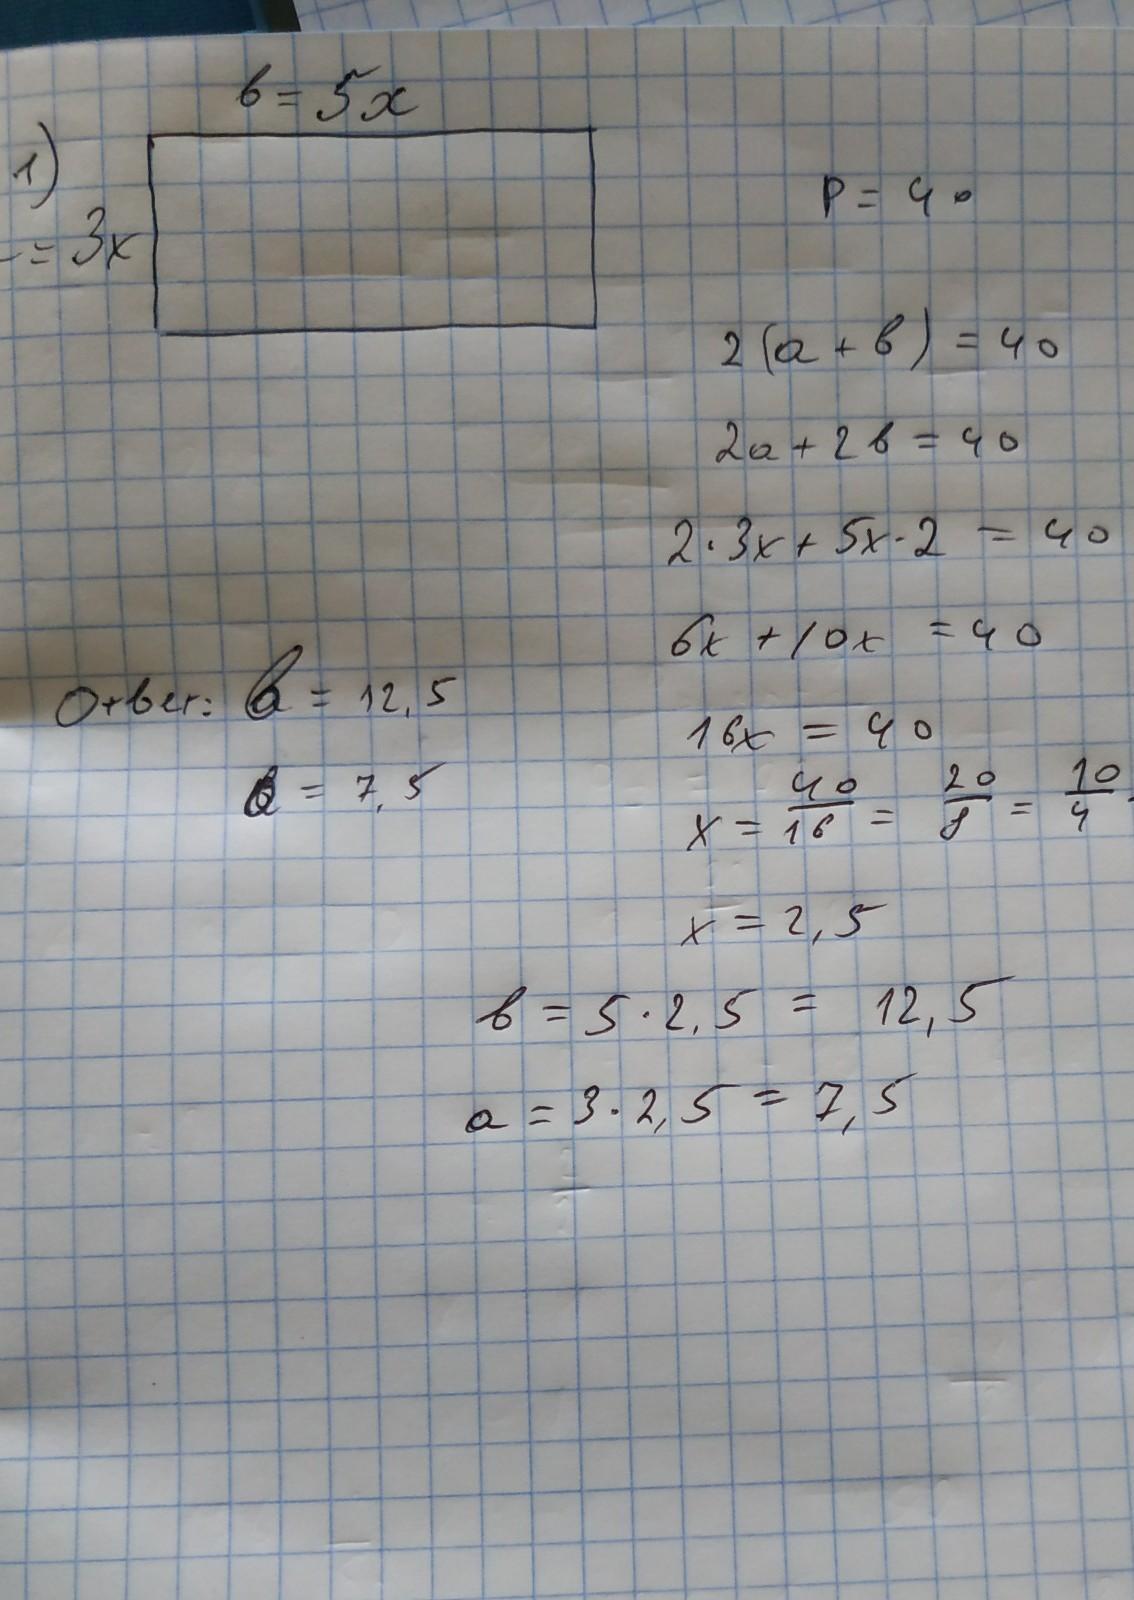 b = 5x
1)
= 3x
P = 40
2(a + b) = 40
2a + 2b = 40
2·3x + 5x·2 = 40
6x + 10x = 40
Ответ: b = 12,5
16x = 40
a = 7,5
x = 40/16 = 20/8 = 10/4
x = 2,5
b = 5·2,5 = 12,5
a = 3·2,5 = 7,5